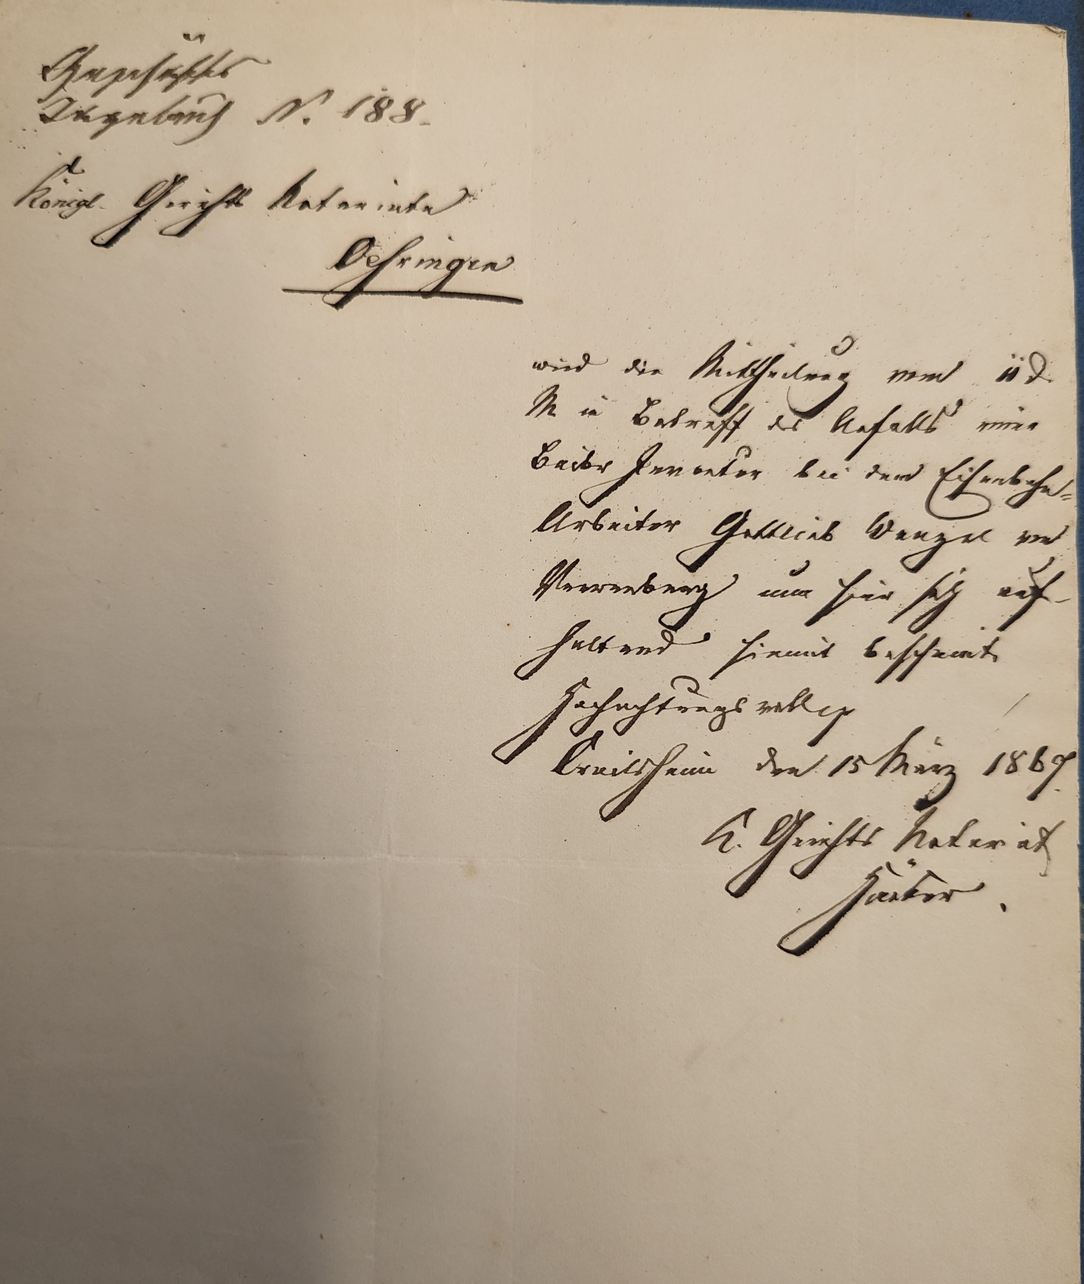 Geschäfts
Tagebuch N. 188.
Königl. Gerichts Notariate
Oehringen
wird die Mittheilung vom 11 d.
M in Betreff des Anfalls einer
Beibr Inventur bei dem Eisenbahn=
Arbeiter Gottlieb Wenzel von
Verrenberg nun hier sich auf-
haltend hiemit bescheint.
Hochachtungsvollst
Crailsheim den 15 März 1867
K. Gerichts Notariat